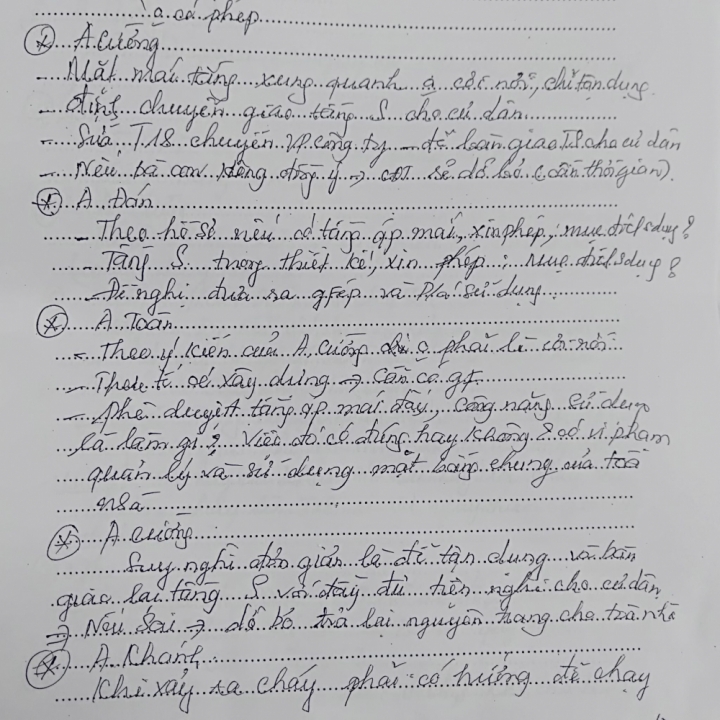 có phép
(*) A. Cường
- Mặt mái tầng xung quanh o cơi nới, chỉ tận dụng
định chuyển giao tầng S cho cư dân
- Sửa T18 chuyển VP công ty để bàn giao T.S cho cư dân
- Nếu bà con không đồng ý → CĐT sẽ dỡ bỏ (cần thời gian).
(*) A. Đán
- Theo hồ sơ nếu có tầng áp mái, xin phép, mục đích sdụg?
- Tầng S trong thiết kế, xin phép; mục đích sdụg?
- Đề nghị đưa ra gfép và P/a sử dụng
(*) A. Toàn
- Theo ý kiến của A Cường o phải là cơi nới
- Thực tế có xây dựng → Cần có gf
- Phê duyệt tầng áp mái đấy, công năng sử dụng
là làm gì? Việc đó có đúng hay không? có vi phạm
quản lý và sử dụng mặt bằng chung của toà
nhà
(*) A. Cường
Suy nghĩ đơn giản là để tận dụng và bàn
giao lại tầng S với đầy đủ tiện nghi cho cư dân
⇒ Nếu sai → dỡ bỏ trả lại nguyên trạng cho toà nhà
(*) A. Khánh
Khi xảy ra cháy phải có hướng để chạy